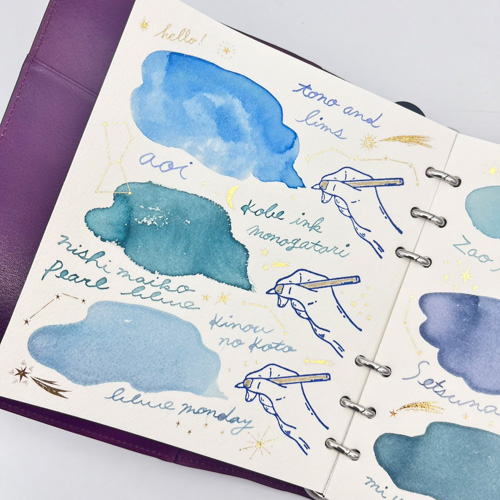 hello!
tono and
lims
aoi
Kobe ink
monogatari
nishi maiko
Pearl blue
Kinou
no Koto
blue monday
Zao
Setsuna
mi